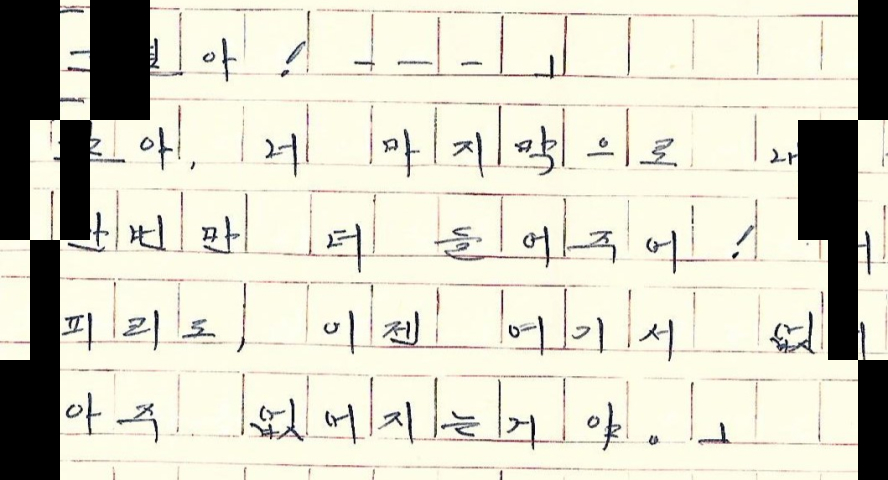 아! ― ― ― 」
아, 너 마지막으로
한번만 더 들어주어!
피리도, 이젠 여기서 없
아주 없어지는거야。」